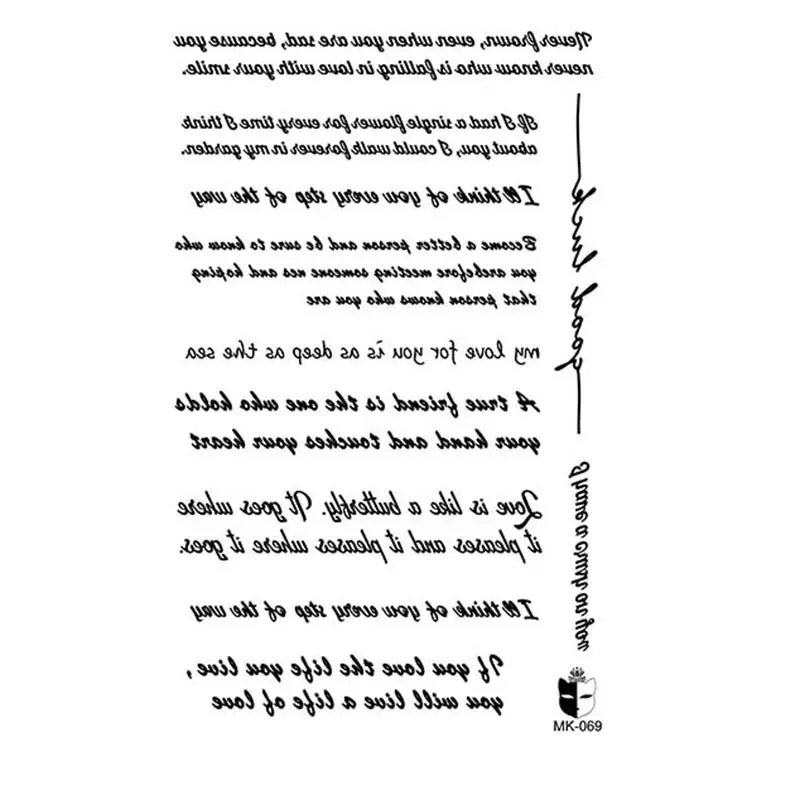 Never frown, even when you are sad, because you
never know who is falling in love with your smile.
If I had a single flower for every time I think
about you, I could walk forever in my garden.
I'll think of you every step of the way
Become a better person and be sure to know who
you arebefore meeting someone nes and hoping
that person knows who you are
my love for you is as deep as the sea
A true friend is the one who holds
your hand and touches your heart
Love is like a butterfly. It goes where
it pleases and it pleases where it goes.
I'll think of you every step of the way
If you love the life you live,
you will live a life of love
good luck
I have a crush on you
MK-069